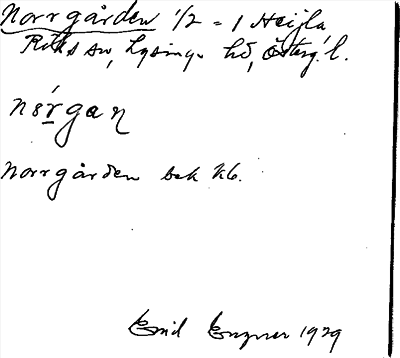 Norrgården 1/2 = 1 Heijla
Röks sn, Lysings hd, Österg. l.
nórgaɳ
Norrgården bek Kb.
Emil 1929